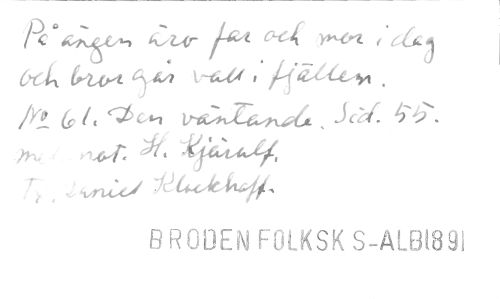 På ängen äro far och mor i dag
och bror går vall i fjällen.
No 61. Den väntande. Sid. 55.
not. H. Kjärulf.
Daniel Klockhoff.
BRODEN FOLKSK S-ALB 1891